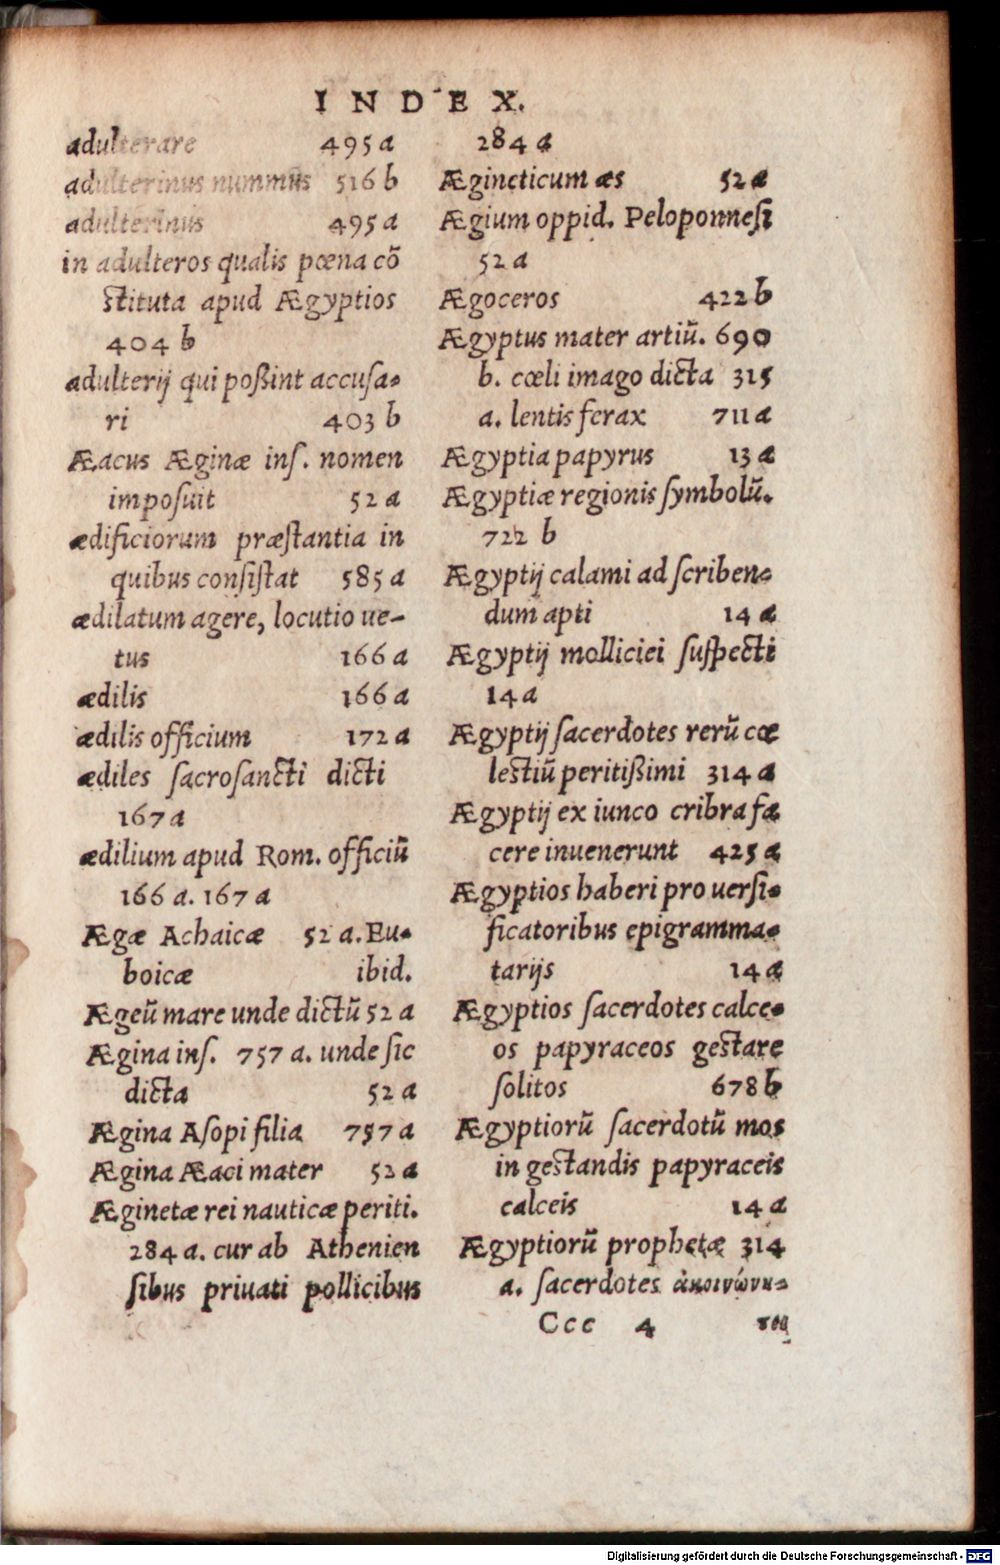 INDEX.
adulterare 495 a
adulterinus nummus 516 b
adulterinus 495 a
in adulteros qualis pœna cõ
ſtituta apud Ægyptios
404 b
adulterij qui poßint accuſa-
ri 403 b
Æacus Æginæ inſ. nomen
impoſuit 52 a
ædificiorum præſtantia in
quibus conſiſtat 585 a
ædilatum agere, locutio ue-
tus 166 a
ædilis 166 a
ædilis officium 172 a
ædiles ſacroſancti dicti
167 a
ædilium apud Rom. officiũ
166 a. 167 a
Ægæ Achaicæ 52 a. Eu-
boicæ ibid.
Ægeũ mare unde dictũ 52 a
Ægina inſ. 757 a. unde ſic
dicta 52 a
Ægina Aſopi filia 757 a
Ægina Æaci mater 52 a
Æginetæ rei nauticæ periti.
284 a. cur ab Athenien
ſibus priuati pollicibus
284 a
Ægineticum æs 52 a
Ægium oppid. Peloponneſi
52 a
Ægoceros 422 b
Ægyptus mater artiũ. 690
b. cœli imago dicta 315
a. lentis ferax 711 a
Ægyptia papyrus 13 a
Ægyptiæ regionis ſymbolũ.
722 b
Ægyptij calami ad ſcriben-
dum apti 14 a
Ægyptij molliciei ſuſpecti
14 a
Ægyptij ſacerdotes rerũ cœ
leſtiũ peritißimi 314 a
Ægyptij ex iunco cribra fa
cere inuenerunt 425 a
Ægyptios haberi pro uerſi-
ficatoribus epigramma-
tarijs 14 a
Ægyptios ſacerdotes calce-
os papyraceos geſtare
ſolitos 678 b
Ægyptiorũ ſacerdotũ mos
in geſtandis papyraceis
calceis 14 a
Ægyptiorũ prophetæ 314
a. ſacerdotes ἀκοινώνη-
Ccc 4
Digitalisierung gefördert durch die Deutsche Forschungsgemeinschaft - DFG